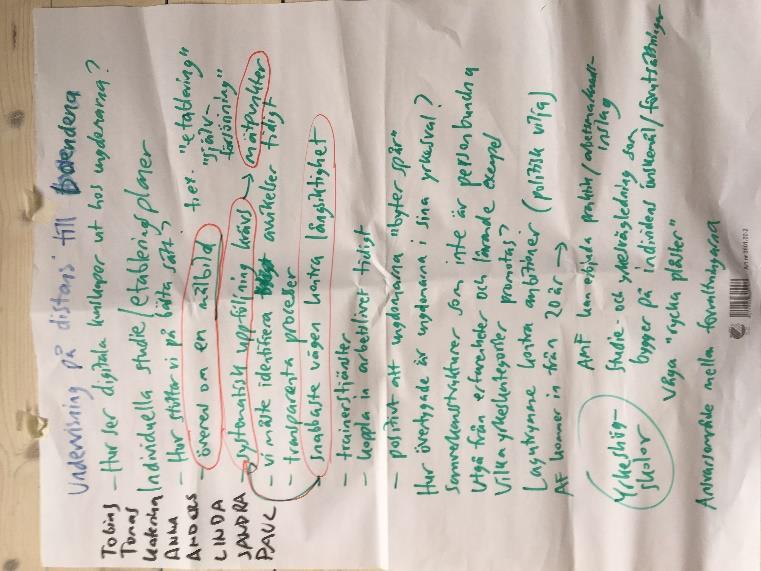 Undervisning på distans till boendena
- Hur ser digitala kunskaper ut hos ungdomarna?
Individuella studie/etableringsplaner
- Hur stöttar vi på bästa sätt?
- överens om en målbild t.ex. "etablering"
"självförsörjning"
- systematisk uppföljning krävs → mätpunkter
- vi måste identifiera avvikelser tidigt
- transparenta processer
snabbaste vägen kontra långsiktighet
- trainerstjänster
- koppla in arbetslivet tidigt
- positivt att ungdomarna "byter spår"
Hur övertygade är ungdomarna i sina yrkesval?
Samverkansstrukturer som inte är personbundna
Utgå från erfarenheter och lärande exempel
Vilka yrkeskategorier promotas?
Lagutrymme kontra ambitioner (politisk vilja)
AF kommer in från 20 år →
AMF kan erbjuda praktik/arbetsmarknads-
inslag
Yrkeshög-
skolor
Studie- och yrkesvägledning som
bygger på individens önskemål/förutsättningar
Våga "rycka plåster"
Ansvarsområde mellan förvaltningarna
Tobias
Tomas
Katarina
Anna
ANDERS
LINDA
SANDRA
PAUL